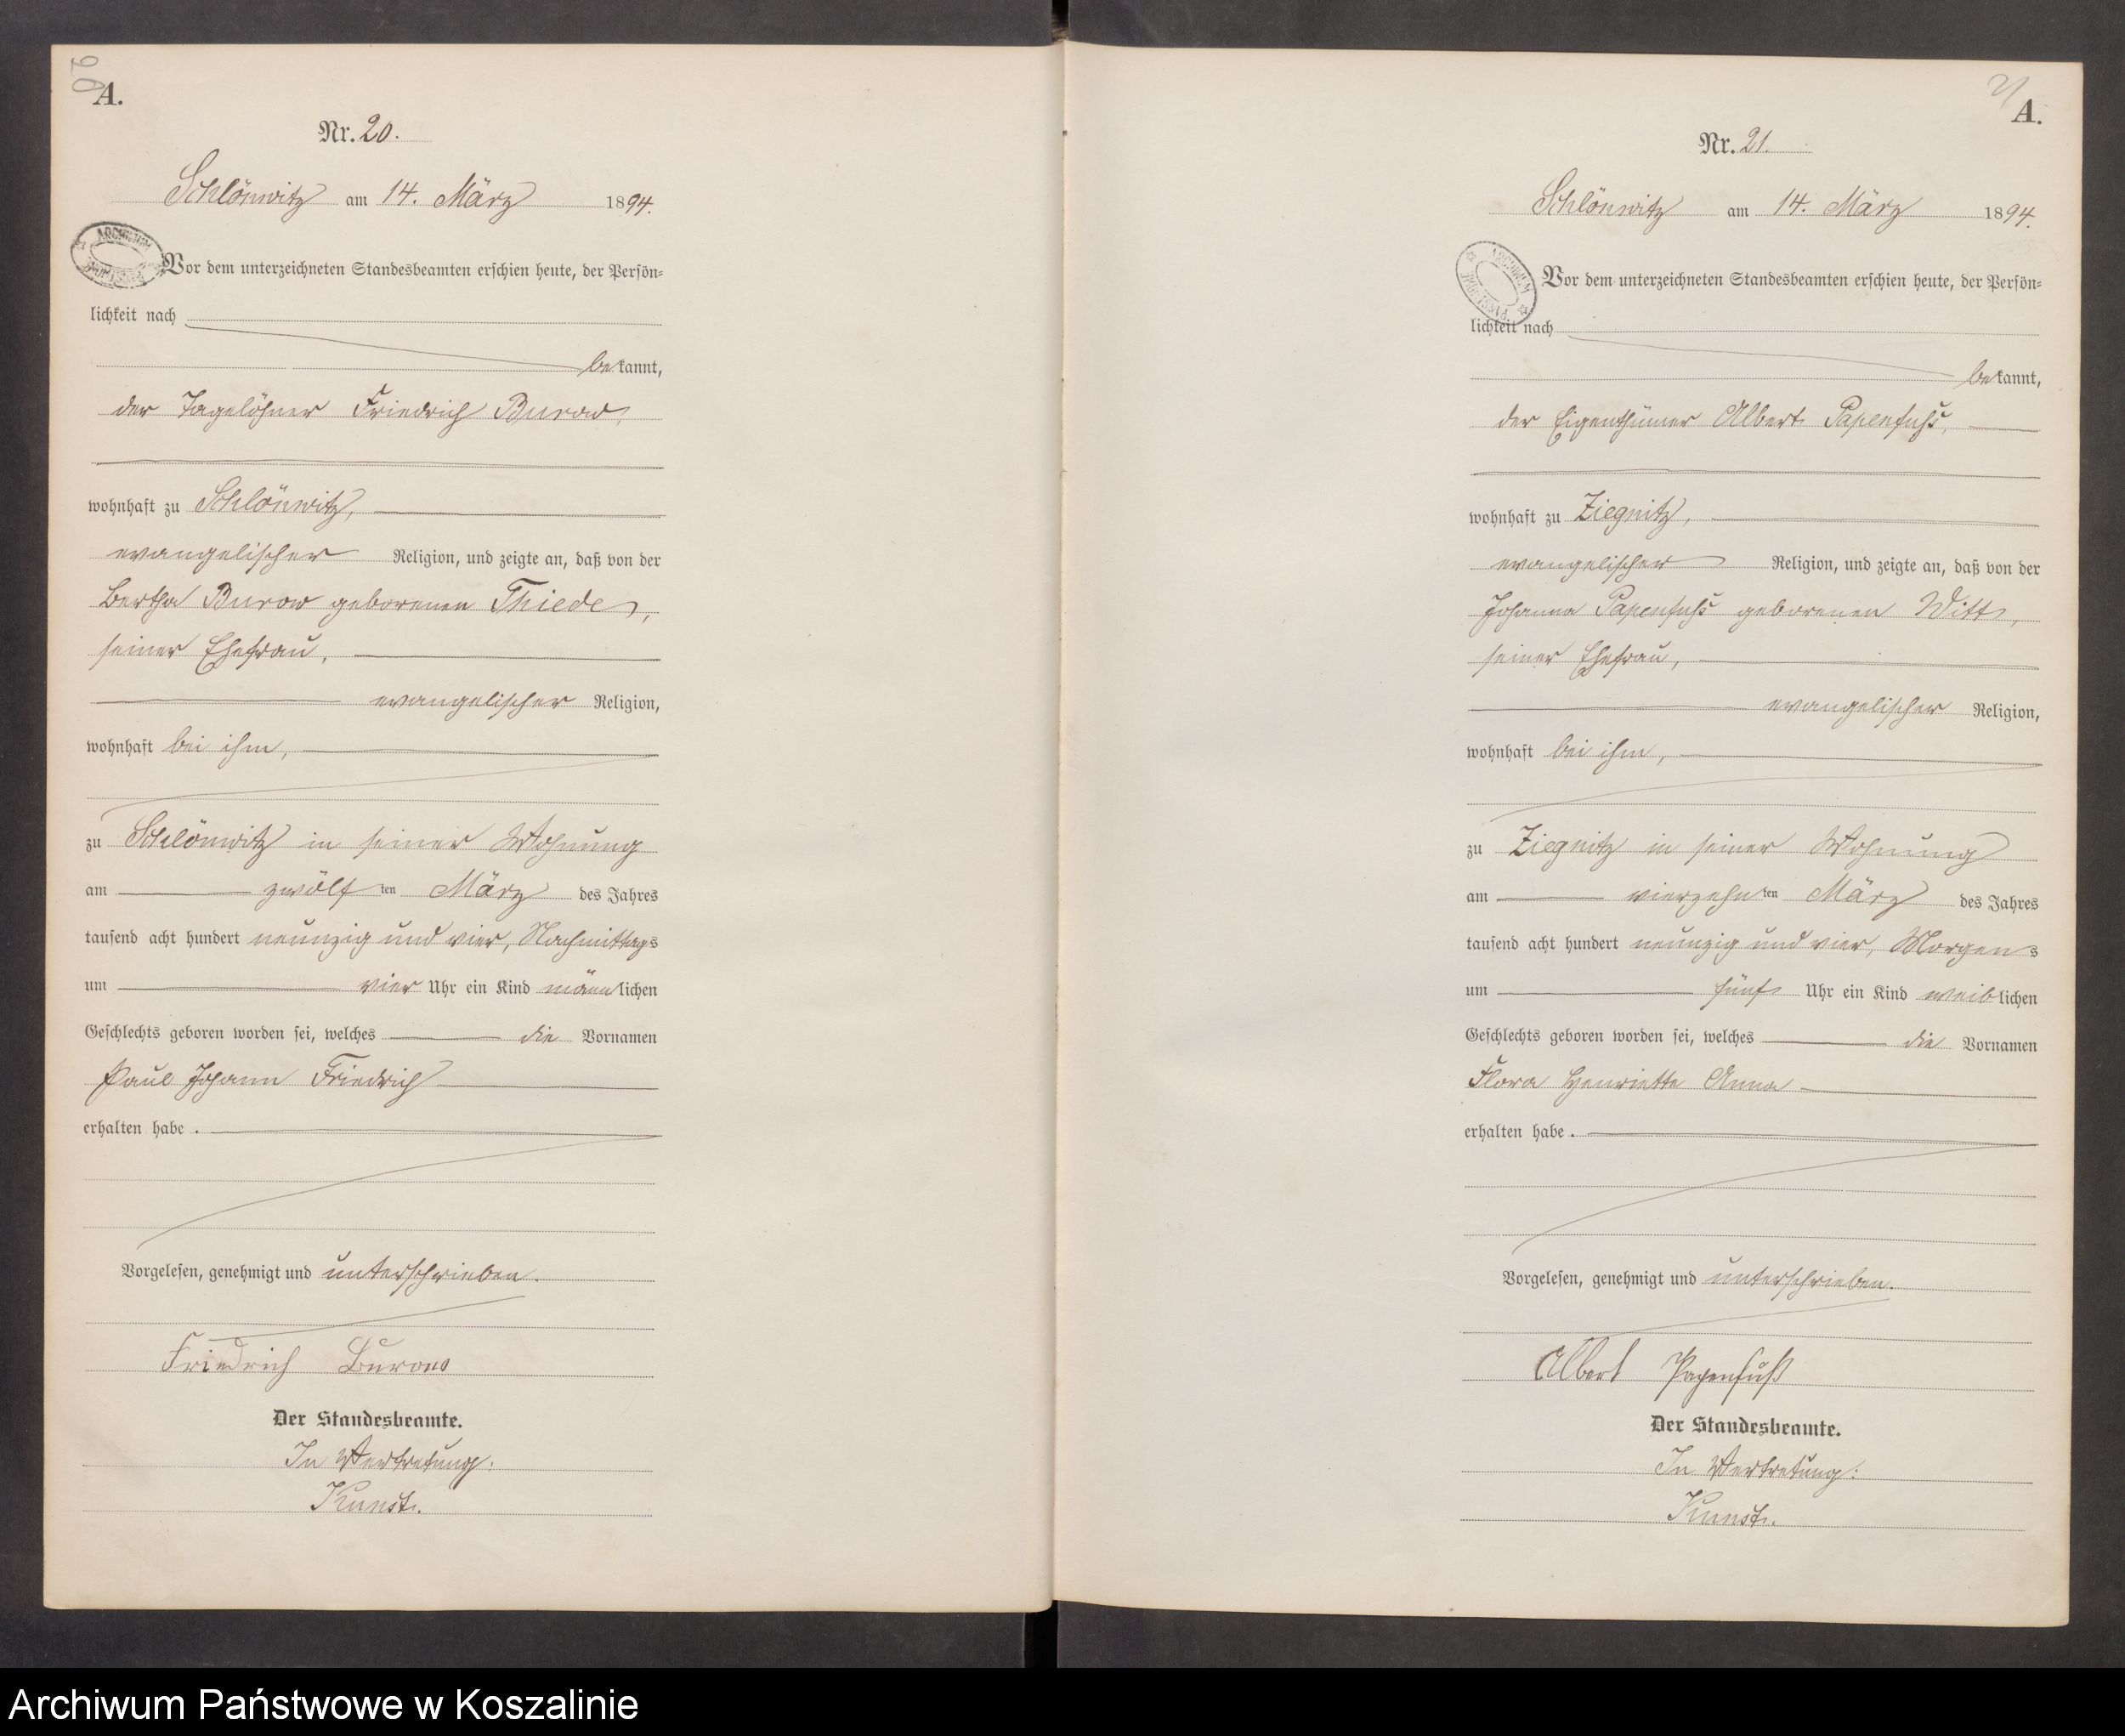 20
A.
Nr. 20.
Schlönwitz am 14. März 1894.
ARCHIWUM
Vor dem unterzeichneten Standesbeamten erschien heute, der Persön=
lichkeit nach
bekannt,
der Tagelöhner Friedrich Burow,
wohnhaft zu Schlönwitz,
evangelischer Religion, und zeigte an, daß von der
Bertha Burow geborenen Thiede,
seiner Ehefrau,
evangelischer Religion,
wohnhaft bei ihm,
zu Schlönwitz in seiner Wohnung
am zwölften März des Jahres
tausend acht hundert neunzig und vier, Nachmittags
um vier Uhr ein Kind männlichen
Geschlechts geboren worden sei, welches die Vornamen
Paul Johann Friedrich
erhalten habe.
Vorgelesen, genehmigt und unterschrieben.
Friedrich Burow
Der Standesbeamte.
In Vertretung:
Kunst.
21
A.
Nr. 21.
Schlönwitz am 14. März 1894.
ARCHIWUM PAŃSTWOWE
Vor dem unterzeichneten Standesbeamten erschien heute, der Persön=
lichkeit nach
bekannt,
der Eigenthümer Albert Papenfuhs,
wohnhaft zu Ziegnitz,
evangelischer Religion, und zeigte an, daß von der
Johanna Papenfuhs geborenen Witt,
seiner Ehefrau,
evangelischer Religion,
wohnhaft bei ihm,
zu Ziegnitz in seiner Wohnung
am vierzehnten März des Jahres
tausend acht hundert neunzig und vier, Morgens
um fünf Uhr ein Kind weiblichen
Geschlechts geboren worden sei, welches die Vornamen
Flora Henriette Anna
erhalten habe.
Vorgelesen, genehmigt und unterschrieben.
Albert Papenfuß
Der Standesbeamte.
In Vertretung:
Kunst.
Archiwum Państwowe w Koszalinie